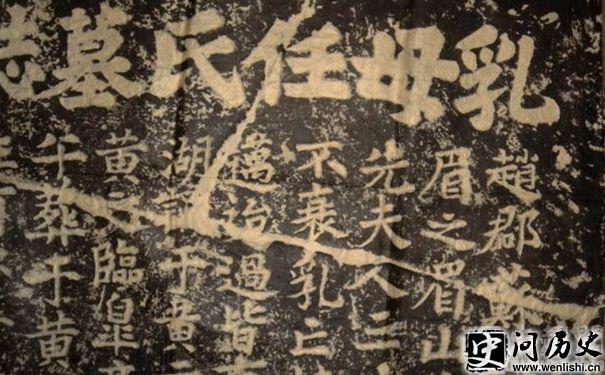 乳母任氏墓志
趙郡蘇
眉之眉山
先夫人三
不衰乳亡
邁迨過皆
湖謫于黃
黃之臨皋
午葬于黃
问历史
www.wenlishi.cn